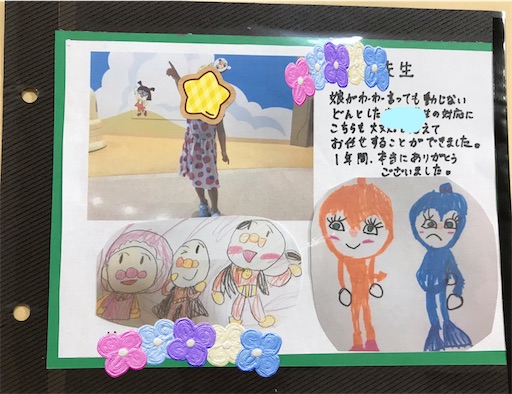 先生
娘がわーわー言っても動じない
どんとした 生の対応に
こちらも えて
お任せすることができました。
1年間、本当にありがとう
ございました。